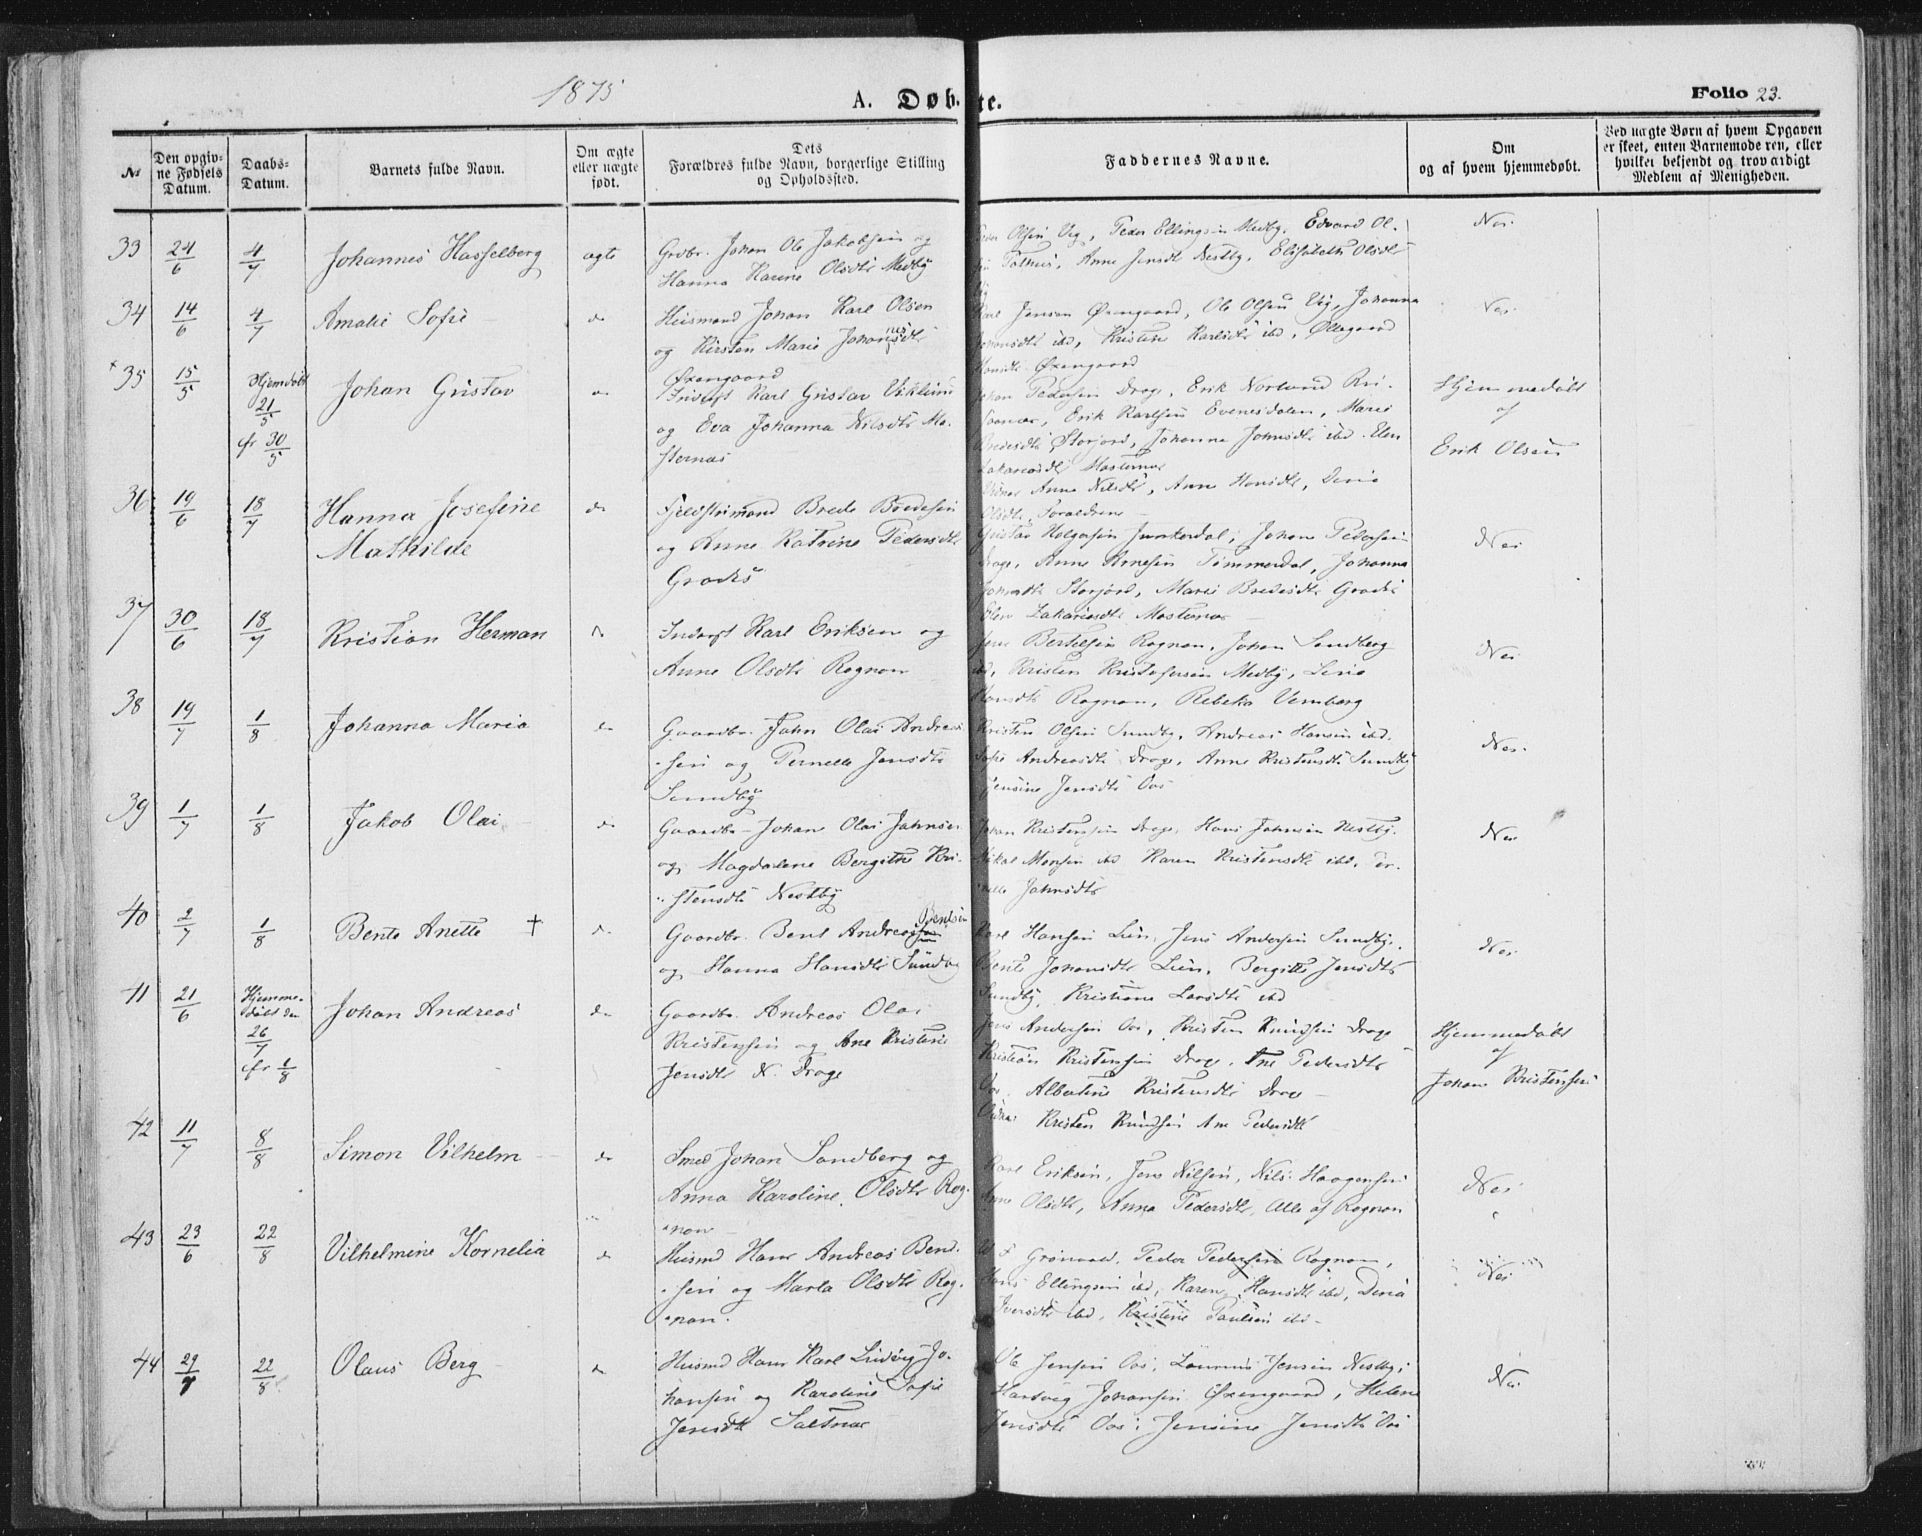 1875
A. Døbte.
Folio 23.
№
Den opgivne Fødsels Datum.
Daabs-Datum.
Barnets fulde Navn.
Om ægte eller uægte født.
Dets Forældres fulde Navn, borgerlige Stilling og Opholdssted.
Faddernes Navne.
Om og af hvem hjemmedøbt.
Ved uægte Børn af hvem Opgaven er skeet, enten Barnemoderen, eller hvilket bekjendt og troværdigt Medlem af Menigheden.
33 24/6 4/7 Johannes Hasselberg ægte
Grdbr. Johan Ole Jakobsen og
Hanna Karine Olsdtr Medby
Peder Olsen Vig, Peder Ellingsen Medby, Edvard Ol-
sen Anne Jensdtr Nestby, Elisabeth Olsdtr
Vig
Nei
34 14/6 4/7 Amalie Sofie do
Huismand Johan Karl Olsen
og Kirsten Marie Johannesdtr
Øxengaard
Karl Jensen Øxengaard, Ole Olsen Vig, Johanna
Johansdtr ibd, Kristine Karlsdtr ibd, Ollegaard
Hansdtr Øxengaard
Nei
35 15/5 Hjemdøbt 21/5 fr 30/5 Johan Gustav do
Karl Gustav Viklund
og Eva Johanna Nilsdtr Mo-
sternæs
Johan Pedersen Drage, Erik Norlund
Erik Karlsen Evenesdalen, Marie
Bredesdtr Storjord, Johanna Johnsdtr ibd. Elen
Zakariasdtr Mosternæs
Hjemmedøbt
af
Erik Olsen
36 19/6 18/7 Hanna Josefine
Mathilde do
Fjeldstrimand Brede Bredesen
og Anne Katrine Pedersdtr
Gradis
Anne Nilsdtr, Anne Hansdtr, Deria
Olsdtr, Forældrene
Gustav Holgersen Junkerdal, Johan Pedersen
Drage, Anne Arnesen Tømmerdal, Johanna
Johnsdtr Storjord, Marie Bredesdtr Gradis
Elen Zakariasdtr Mosternæs
Nei
37 30/6 18/7 Kristian Herman do
Inderst Karl Eriksen og
Anne Olsdtr Rognan
Jens Bertelsen Rognan, Johan Sandberg
ibd, Kristen Kristofersen Medby,
Hansdtr Rognan, Rebeka Vennberg
Nei
38 19/7 1/8 Johanna Maria do
Gaardbr. John Olai Andrea-
sen og Pernelle Jensdtr
Sundby
Kristen Olsen Sundby, Andreas Hansen ibd.
Sofie Andreasdtr Drage, Anne Kristensdtr Sundby
Jensine Jensdtr Oos
Nei
39 1/7 1/8 Jakob Olai do
Gaardbr. Johan Olai Jahnsen
og Magdalene Bergithe Kri-
stensdtr Nestby
Johan Kristensen Drage, Hans Jahnsen Nestby,
Nikol Monsen ibd Karen Kristensdtr ibd, Per-
nelle Jahnsdtr
Nei
40 2/7 1/8 Bente Anette + do
Gaardbr. Bent Andreas Bentsen
og Hanna Hansdtr Sundby
Karl Hansen Lien, Jens Andersen Sundby,
Bente Johansdtr Lien, Bergitte Jensdtr
Sundby, Kristiane Larsdtr ibd
Nei
41 21/6 Hjemmedøbt den 26/7 fr 1/8 Johan Andreas do
Gaardbr. Andreas Olai
Kristensen og Ane Kristine
Jensdtr N. Drage
Jens Andersen Oos, Kristen Knudsen Drage
Kristian Kristensen Drage, Ane Pedersdtr
Oos, Albertine Kristensdtr Drage
Kristen Knudsen Ane Pedersdtr
Hjemmedøbt
af
Johan Kristensen
42 11/7 8/8 Simon Vilhelm do
Smed Johan Sandberg og
Anna Karoline Olsdtr Rog-
nan
Karl Eriksen, Jens Nilsen, Nils Haagensen
Ane Olsdtr, Anna Pedersdtr, Alle af Rognan
Nei
43 23/6 22/8 Vilhelmine Kornelia do
Husmd Hans Andreas Bend-
sen og Marta Olsdtr Rog-
nan.
Grönvold, Peder Pedersen Rognan,
Hans Ellingsen ibd, Karen Hansdtr ibd, Deria
Iversdtr ibd, Kristine Paulsen ibd
Nei
44 29/7 22/8 Olaus Berg do
Husmd Hans Karl Ludvig Jo-
hansen og Karoline Sofie
Jensdtr Saltnæs
Ole Jensen Oos, Laurens Jensen Nestby,
Hartvig Johansen Øxengaard, Helene
Jensdtr Oos, Jensine Jensdtr Oos
Nei